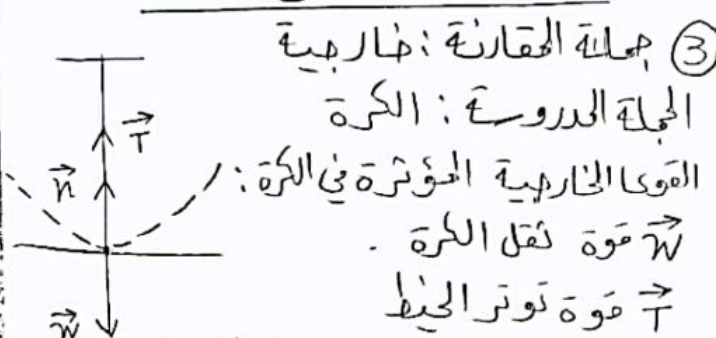 ③ جملة المقارنة : خارجية
الجملة المدروسة : الكرة
القوى الخارجية المؤثرة في الكرة :
W قوة ثقل الكرة .
T قوة توتر الخيط
T
n
W